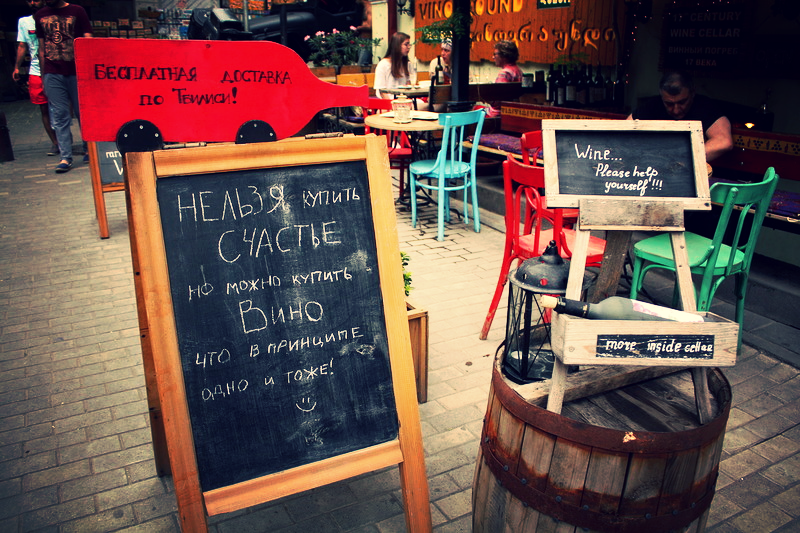 Бесплатная доставка
по Тбилиси!
НЕЛЬЗЯ купить
СЧАСТЬЕ
но можно купить
Вино
что в принципе
одно и тоже!
Wine...
Please help
yourself!!!
more inside cellar
VINO UNDERGROUND
CENTURY
WINE CELLAR